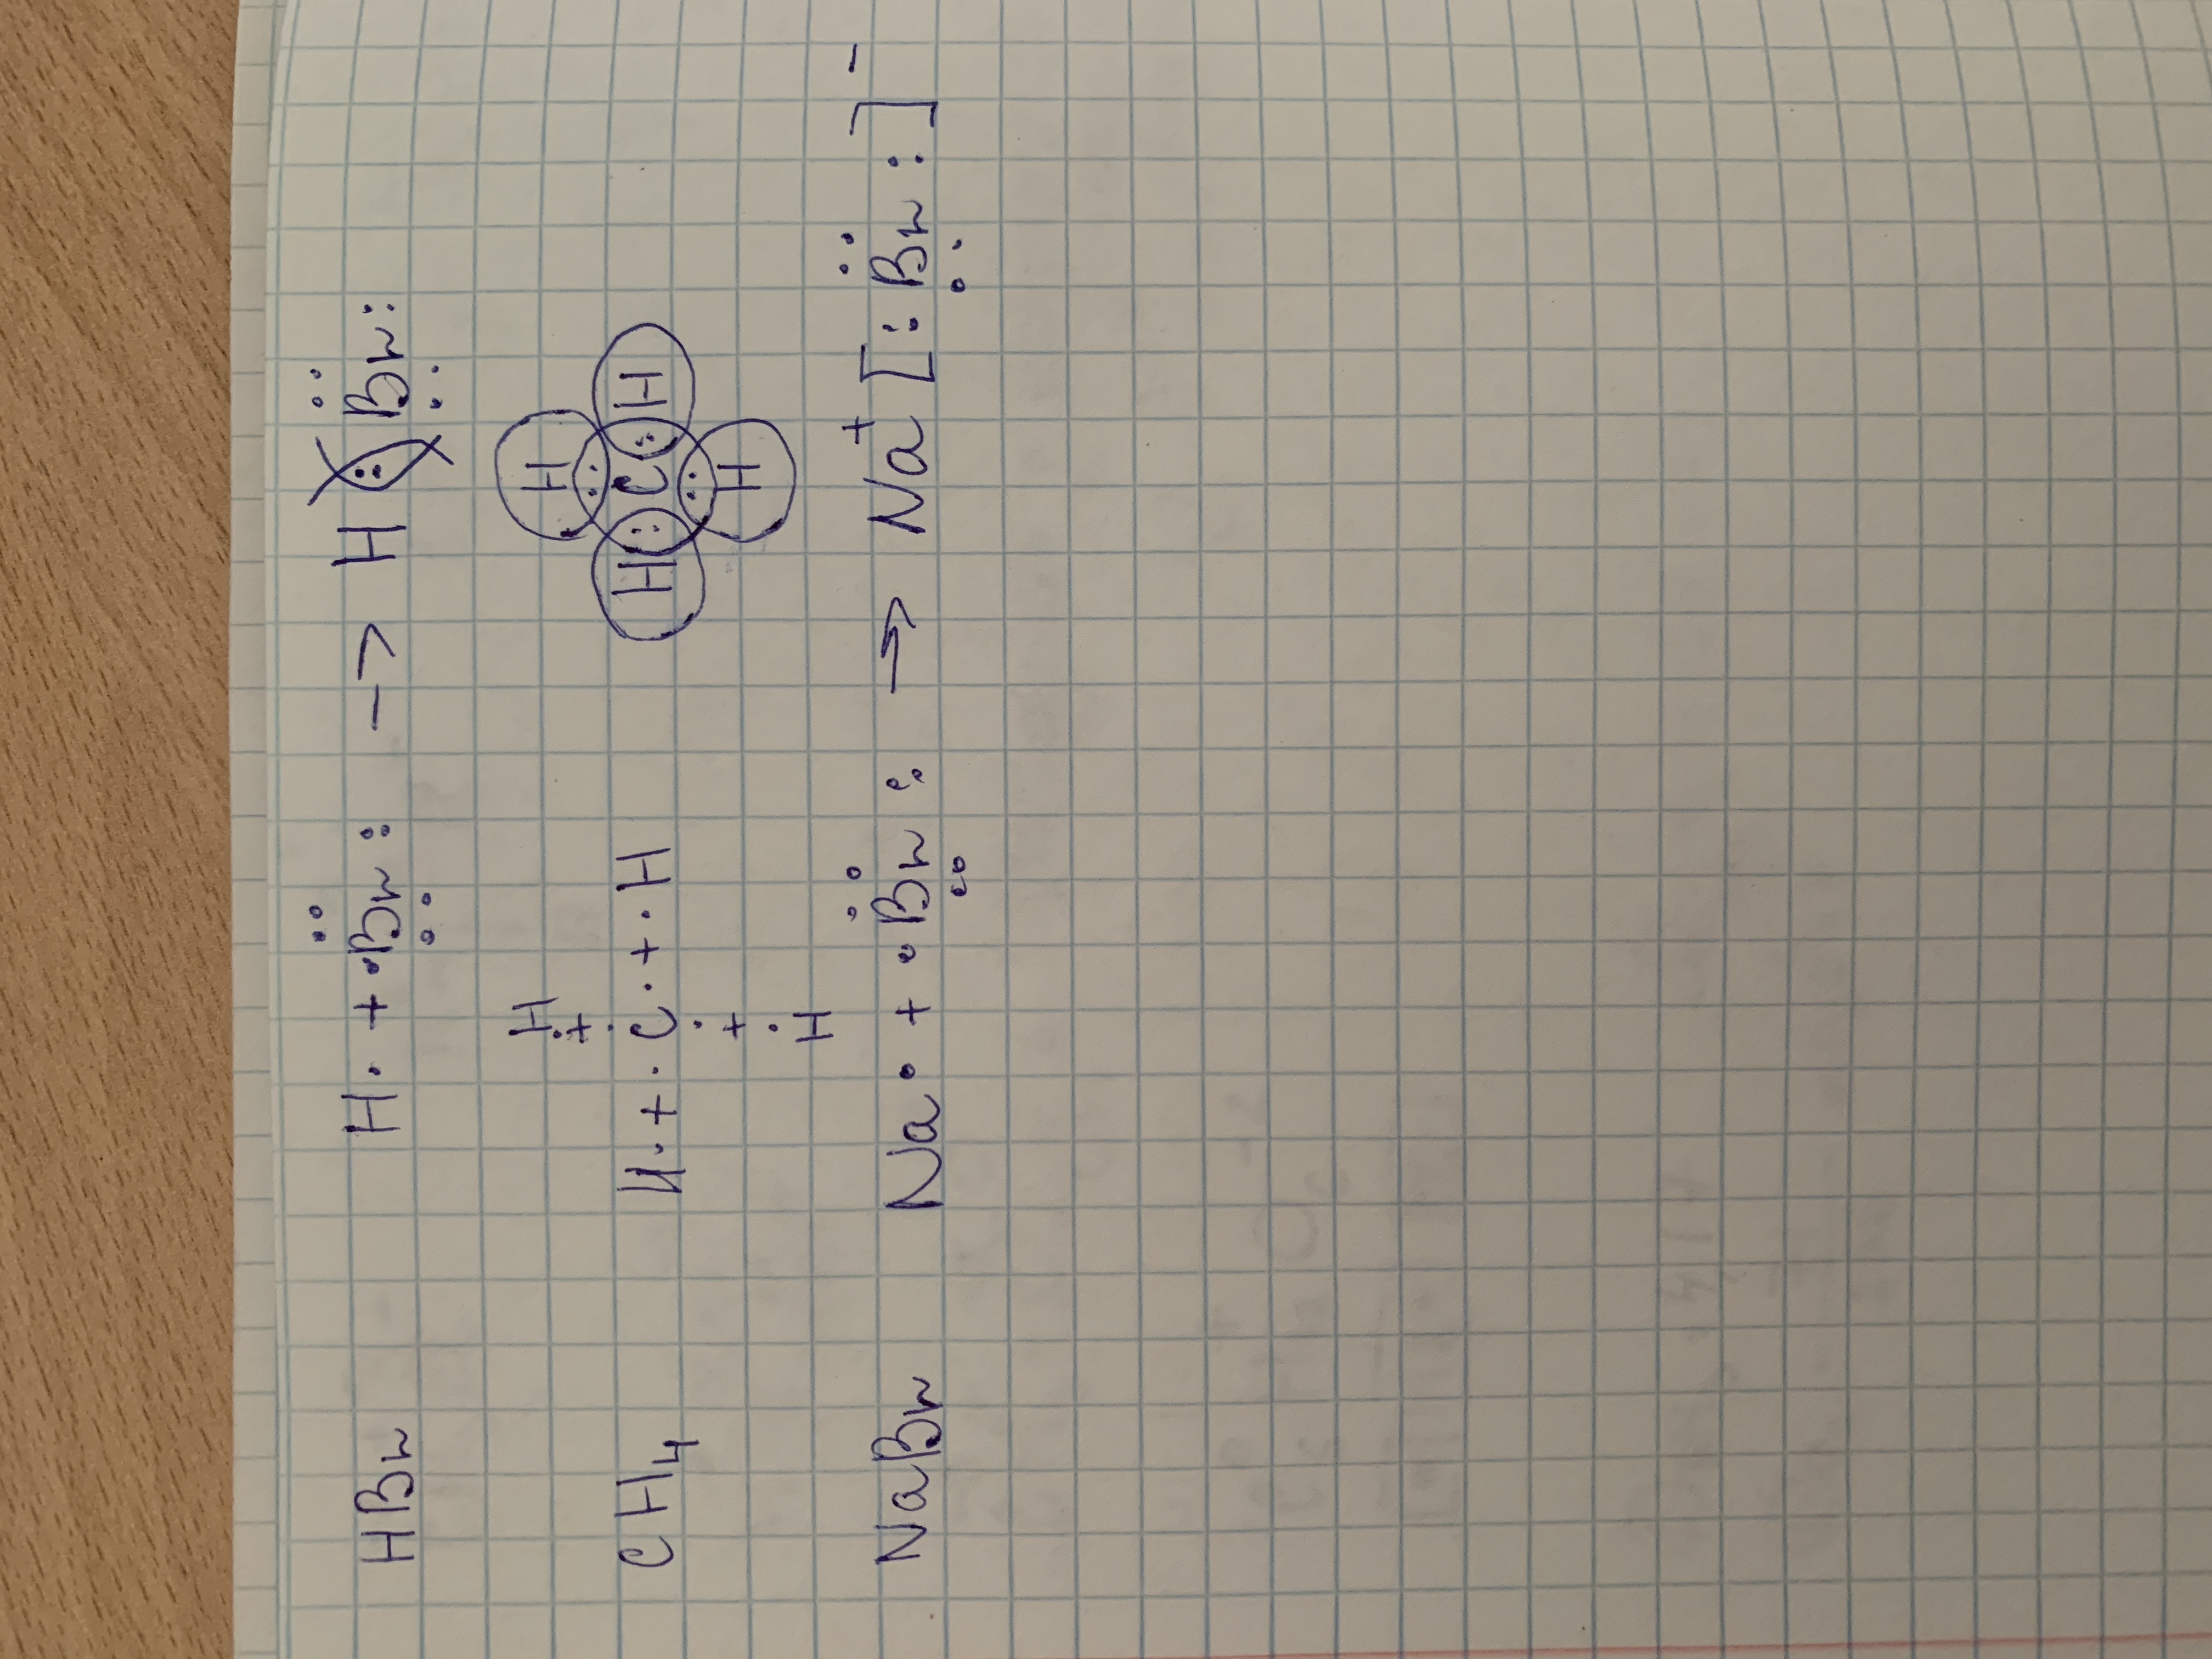 HBr H· + ·Br: → H(:)Br:
CH4 H· + ·C· + ·H H:C:H
H + · · + H H H
NaBr Na· + ·Br: → Na+ [:Br:]−